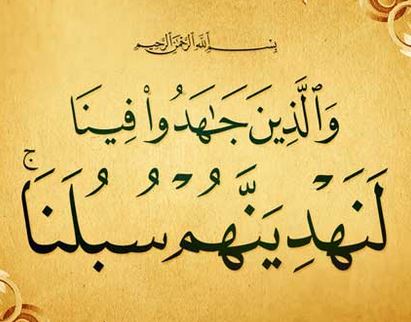 بِسْمِ ٱللَّهِ ٱلرَّحْمَٰنِ ٱلرَّحِيمِ
وَٱلَّذِينَ جَـٰهَدُوا۟ فِينَا
لَنَهْدِيَنَّهُمْ سُبُلَنَا ۚ